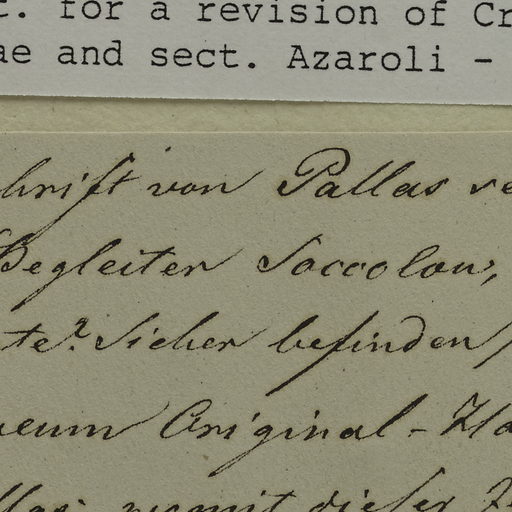 t. for a revision of Cr
ae and sect. Azaroli -
hrift von Pallas
Begleiter
te? Sicher befinden
eum Original-
mit dieser